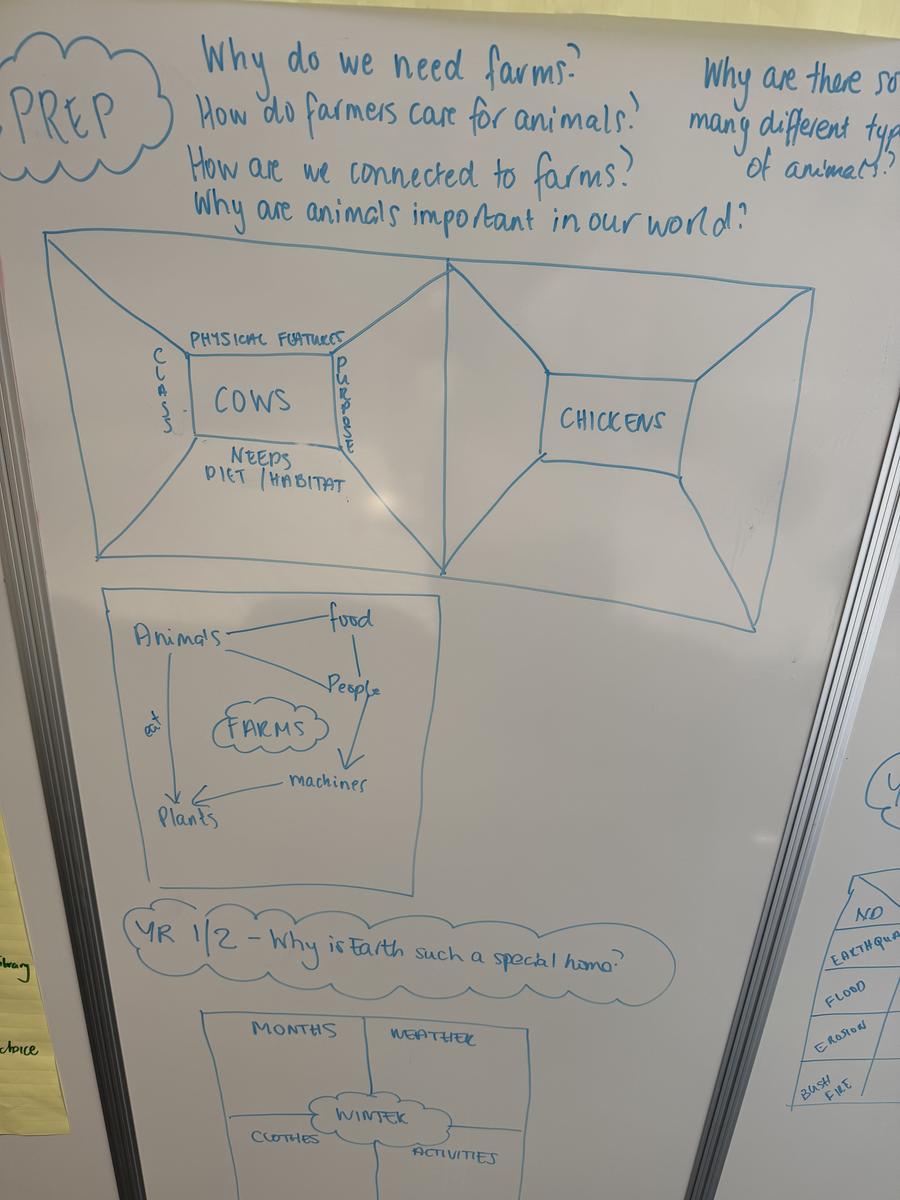 PREP
Why do we need farms?
How do farmers care for animals?
How are we connected to farms?
Why are animals important in our world?
Why are there so
many different typ
of animals?
PHYSICAL FEATURES
CLASS
COWS
PURPOSE
NEEDS
DIET / HABITAT
CHICKENS
Animals
food
People
eat
FARMS
machines
Plants
YR 1/2 - Why is Earth such a special home?
MONTHS
WEATHER
WINTER
CLOTHES
ACTIVITIES
ND
EARTHQUA
FLOOD
EROSION
BUSH
FIRE
choice